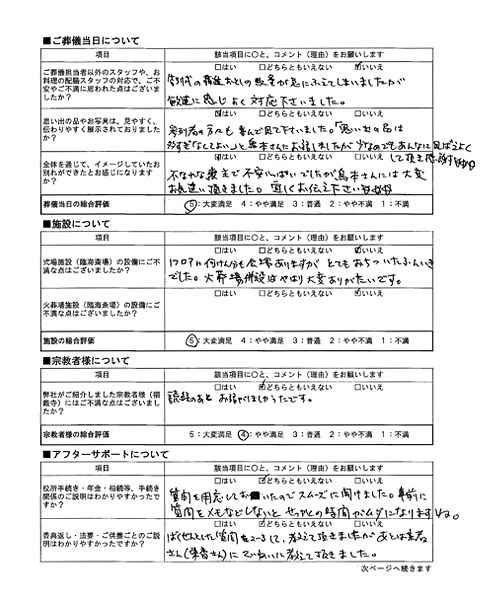 ■ご葬儀当日について
項目 該当項目に○と、コメント(理由)をお願いします
ご葬儀担当者以外のスタッフや、お料理の配膳スタッフの対応で、ご不安やご不満に思われた点はございましたか？
□はい □どちらともいえない ☑いいえ
が急にふえてしまいましたが
敏速に感じよく対応下さいました。
思い出の品やお写真は、見やすく、伝わりやすく展示されておりましたか？
☑はい □どちらともいえない □いいえ
参列者の方々も喜んで見て下さいました。「思い出の品は
して頂き感謝
全体を通じて、イメージしていたお別れができたとお感じになりますか？
☑はい □どちらともいえない □いいえ
不安いっぱいでしたが 島本さんには大変
お世話頂きました。宜しくお伝え下さい
葬儀当日の総合評価 ⑤：大変満足 4：やや満足 3：普通 2：やや不満 1：不満
■施設について
項目 該当項目に○と、コメント(理由)をお願いします
式場施設（臨海斎場）の設備にご不満な点はございましたか？
□はい □どちらともいえない ☑いいえ
1フロアに何けん分も会場ありますが とてもおちついたふんいき
でした。火葬場併設はやはり大変ありがたいです。
火葬場施設（臨海斎場）の設備にご不満な点はございましたか？
□はい □どちらともいえない ☑いいえ
施設の総合評価 ⑤：大変満足 4：やや満足 3：普通 2：やや不満 1：不満
■宗教者様について
項目 該当項目に○と、コメント(理由)をお願いします
□はい ☑どちらともいえない □いいえ
弊社がご紹介しました宗教者様（福厳寺）にはご不満な点はございましたか？
読経のあと お話がほしかったです。
宗教者様の総合評価 5：大変満足 ④：やや満足 3：普通 2：やや不満 1：不満
■アフターサポートについて
項目 該当項目に○と、コメント(理由)をお願いします
役所手続き・年金・相続等、手続き関係のご説明はわかりやすかったですか？
□はい ☑どちらともいえない □いいえ
質問を用意しておいたのでスムーズに聞けました。事前に
質問をメモなどしないと せっかくの時間がムダになりますね。
香典返し・法要・ご供養ごとのご説明はわかりやすかったですか？
□はい ☑どちらともいえない □いいえ
ばくぜんとした質問を して、教えて頂きましたが あとは業者
さん にていねいに教えて頂きました。
次ページへ続きます